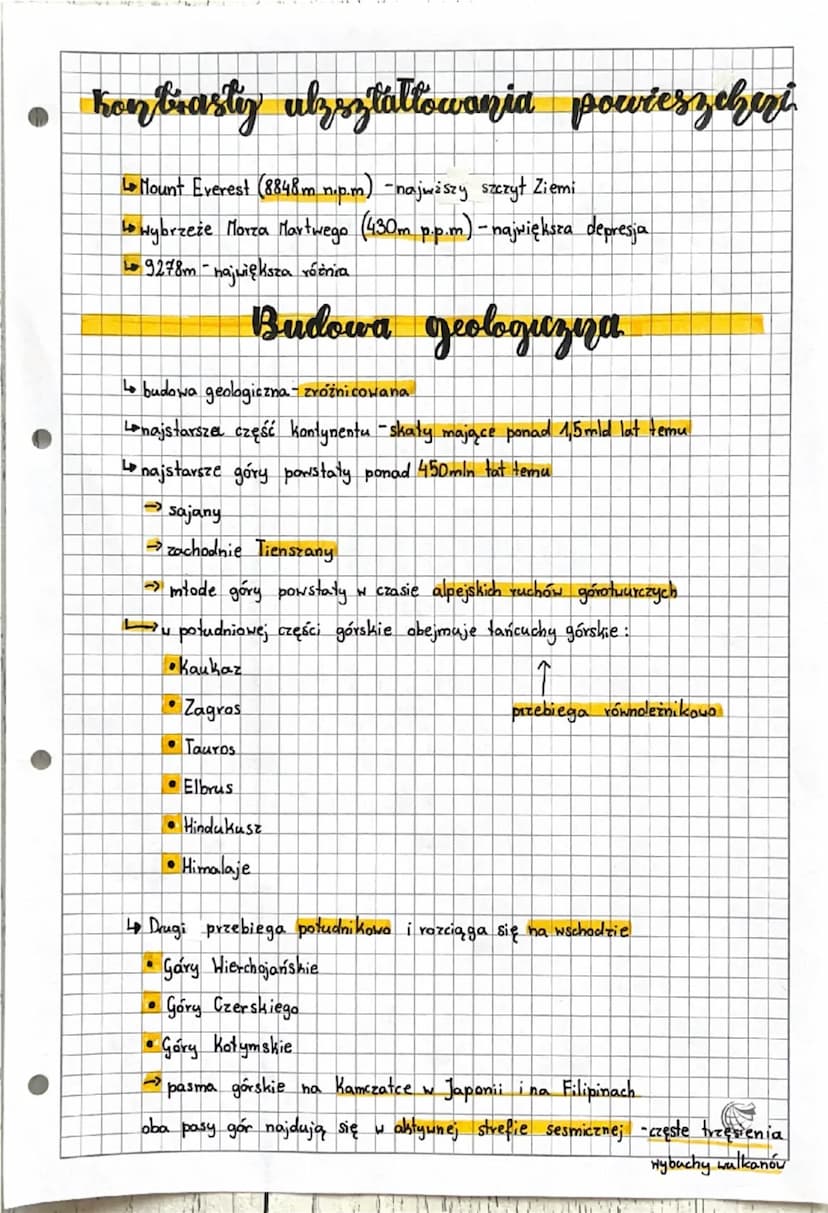 Kontrasty ukształtowania powierzchni
↳ Mount Everest (8848m n.p.m) - najwższy szczyt Ziemi
↳ wybrzeże Morza Martwego (430m p.p.m) - największa depresja
↳ 9278m - największa różnia
Budowa geologiczna
↳ budowa geologiczna - zróżnicowana
↳ najstarsza część kontynentu - skały mające ponad 1,5mld lat temu
↳ najstarsze góry powstały ponad 450mln lat temu
→ sajany
→ zachodnie Tienszany
→ młode góry powstały w czasie alpejskich ruchów górotwurczych
↳ w południowej części górskie obejmuje łańcuchy górskie:
• Kaukaz
↑
• Zagros
przebiega równoleżnikowo
• Tauros
• Elbrus
• Hindukusz
• Himalaje
↳ Drugi przebiega południkowo i rozciąga się na wschodzie
• Góry Wierchojańskie
• Góry Czerskiego
• Góry Kołymskie
→ pasma górskie na Kamczatce w Japonii i na Filipinach
oba pasy gór najdują się w aktywnej strefie sesmicznej - częste trzęsienia
wybuchy wulkanów